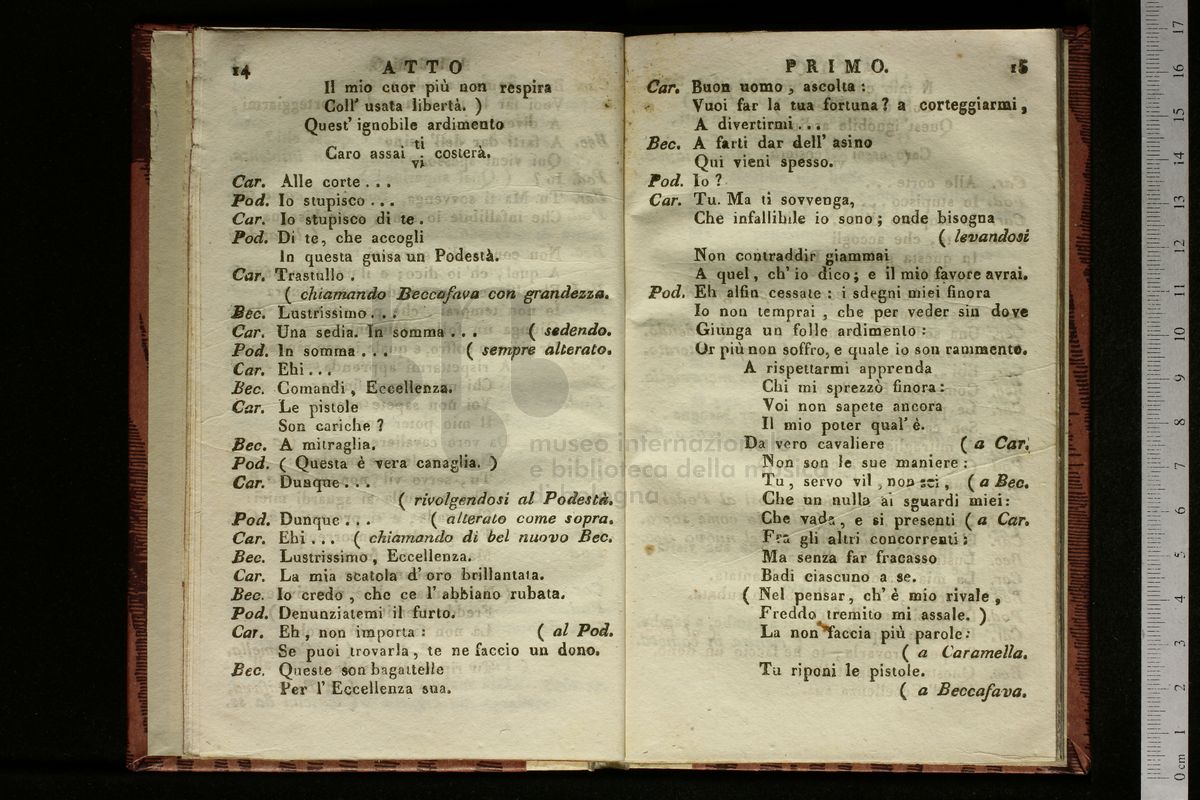 14 ATTO
Il mio cuor più non respira
Coll' usata libertà. )
Quest' ignobile ardimento
Caro assai ti costerà.
vi
Car. Alle corte . . .
Pod. Io stupisco . . .
Car. Io stupisco di te .
Pod. Di te, che accogli
In questa guisa un Podestà.
Car. Trastullo .
( chiamando Beccafava con grandezza.
Bec. Lustrissimo . . .
Car. Una sedia. In somma . . . ( sedendo.
Pod. In somma . . . ( sempre alterato.
Car. Ehi . . .
Bec. Comandi , Eccellenza.
Car. Le pistole
Son cariche ?
Bec. A mitraglia.
Pod. ( Questa è vera canaglia. )
Car. Dunque . . .
( rivolgendosi al Podestà.
Pod. Dunque . . . ( alterato come sopra.
Car. Ehi . . . ( chiamando di bel nuovo Bec.
Bec. Lustrissimo , Eccellenza.
Car. La mia scatola d' oro brillantata.
Bec. Io credo , che ce l' abbiano rubata.
Pod. Denunziatemi il furto.
Car. Eh , non importa : ( al Pod.
Se puoi trovarla , te ne faccio un dono.
Bec. Queste son bagattelle
Per l' Eccellenza sua.
PRIMO. 15
Car. Buon uomo , ascolta :
Vuoi far la tua fortuna ? a corteggiarmi ,
A divertirmi . . .
Bec. A farti dar dell' asino
Qui vieni spesso.
Pod. Io ?
Car. Tu. Ma ti sovvenga,
Che infallibile io sono ; onde bisogna
( levandosi
Non contraddir giammai
A quel , ch' io dico ; e il mio favore avrai.
Pod. Eh alfin cessate : i sdegni miei finora
Io non temprai , che per veder sin dove
Giunga un folle ardimento :
Or più non soffro, e quale io son rammento.
A rispettarmi apprenda
Chi mi sprezzò finora :
Voi non sapete ancora
Il mio poter qual' è.
Da vero cavaliere ( a Car.
Non son le sue maniere :
Tu , servo vil , non sei , ( a Bec.
Che un nulla ai sguardi miei :
Che vada , e si presenti ( a Car.
Fra gli altri concorrenti ;
Ma senza far fracasso
Badi ciascuno a se.
( Nel pensar , ch' è mio rivale ,
Freddo tremito mi assale. )
La non faccia più parole :
( a Caramella.
Tu riponi le pistole.
( a Beccafava.
museo internazionale
e biblioteca della musica
di bologna
0 cm 1 2 3 4 5 6 7 8 9 10 11 12 13 14 15 16 17